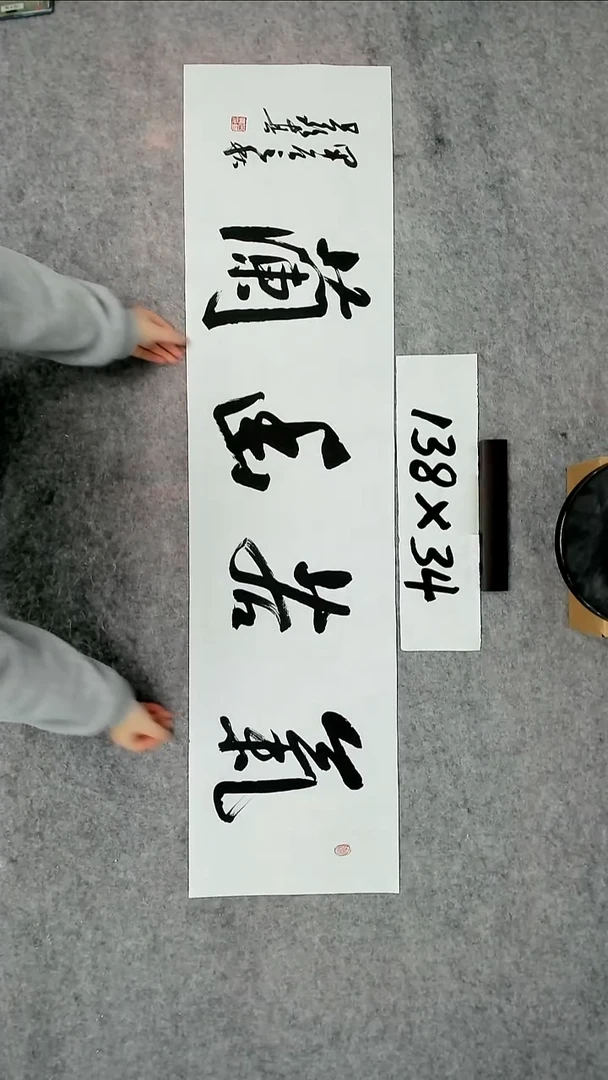 氣若幽蘭
138×34